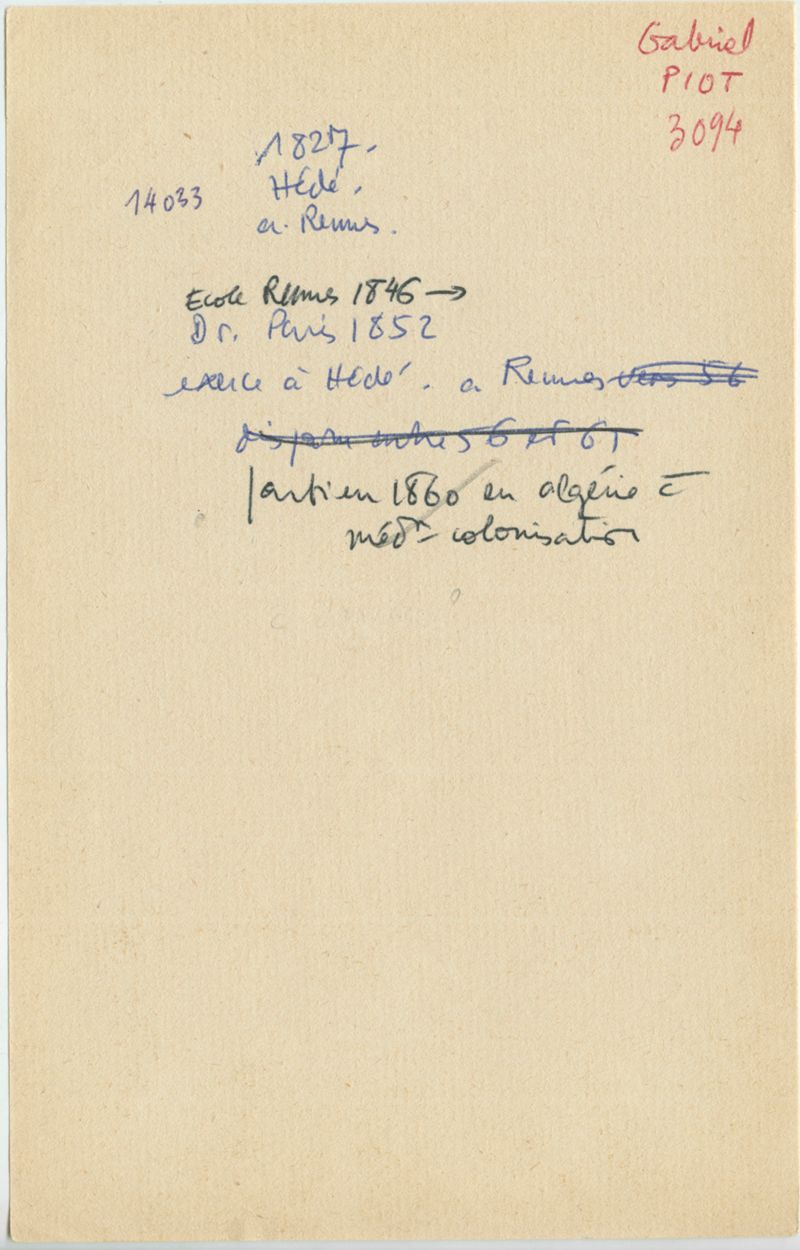 Gabriel
PIOT
3094
1827.
Hédé.
14033
a. Rennes.
Ecole Rennes 1846 →
Dr. Paris 1852
exerce à Hédé. a Rennes vers 56
disparu entre 56 et 61
parti en 1860 en algérie c
médn colonisation